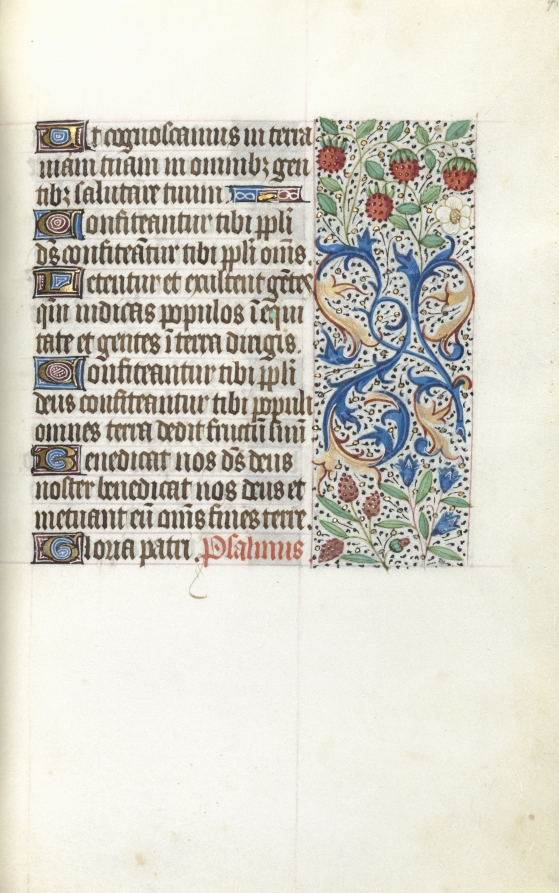 Ut cognoscamus in terra
uiam tuam in omnibꝫ gen
tibꝫ salutare tuum.
Confiteantur tibi ppl̄i
ds̄ confiteātur tibi ppl̄i om̄s
Letentur et exultent gētes
qm̄ iudicas populos ī equi
tate et gentes ī terra dirigis.
Confiteantur tibi ppl̄i
deus confiteantur tibi populi
omnes terra dedit fructū suū
Benedicat nos ds̄ deus
noster benedicat nos deus et
metuant eū om̄s fines terre.
Gloria patri. Psalmus